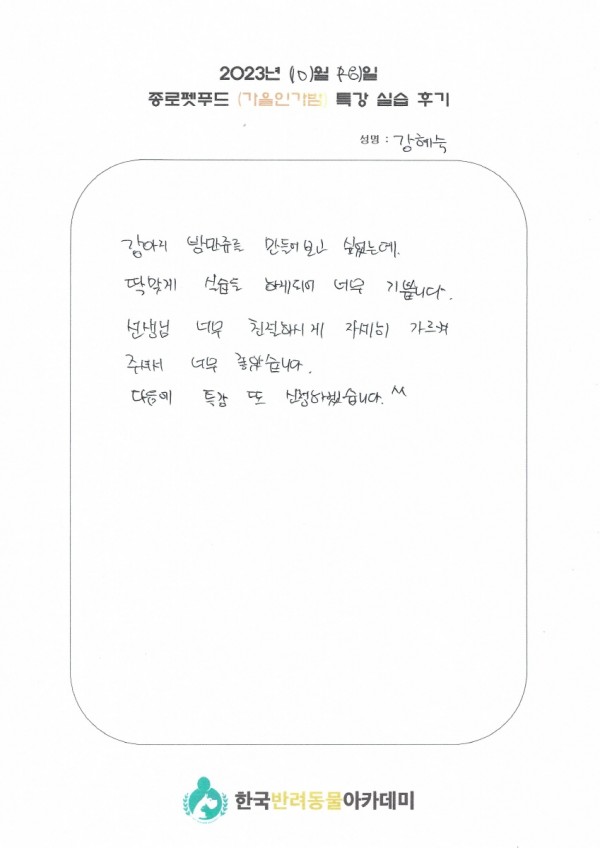 2023년 (10)월 (26)일
종로펫푸드 (가을인가밤) 특강 실습 후기
성명 : 강혜숙
강아지 밤만쥬를 만들어보고 싶었는데.
딱맞게 실습도 하게되어 너무 기쁩니다.
선생님 너무 친절하시게 자세히 가르켜
주셔서 너무 좋았습니다.
다음에 특강 또 신청하겠습니다. ^^
한국반려동물아카데미